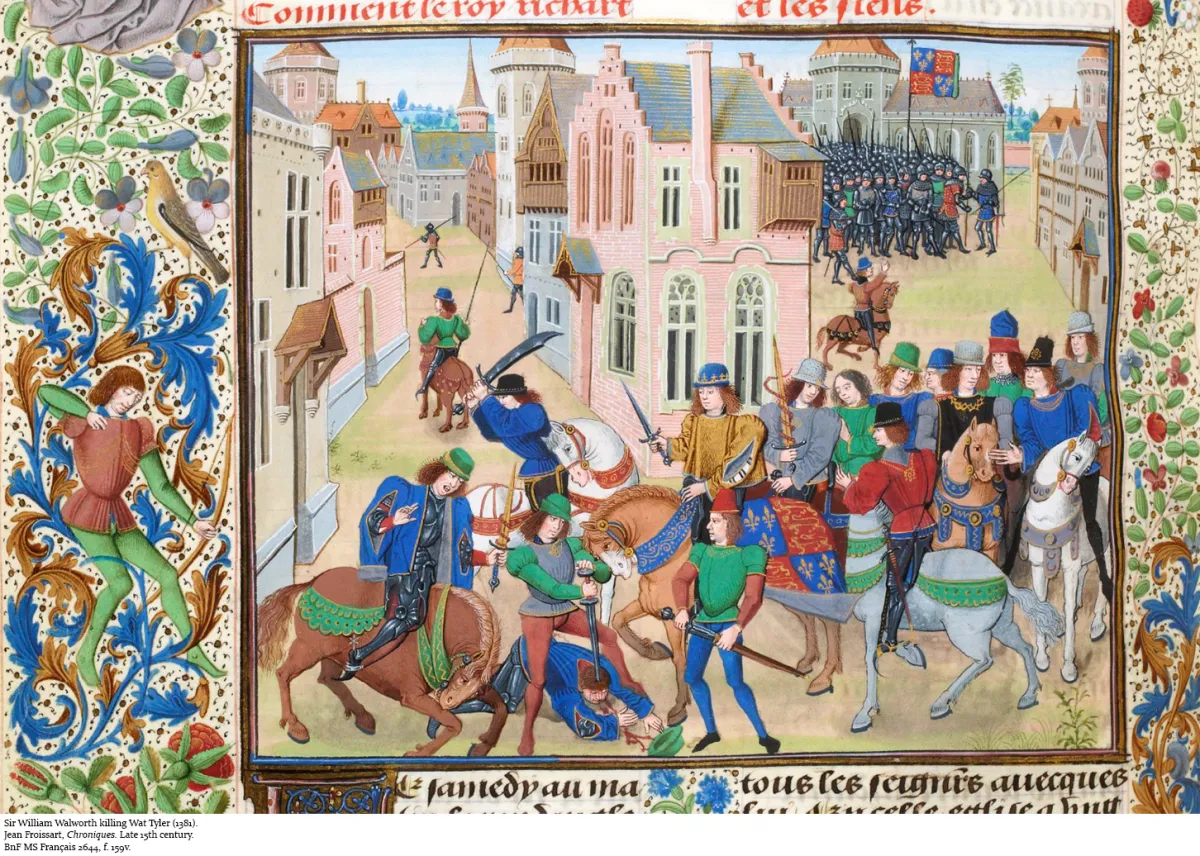 Comment le roy richart et les siens.
Le samedy au ma
tous les seigñrs avecques
Sir William Walworth killing Wat Tyler (1381).
Jean Froissart, Chroniques. Late 15th century.
BnF MS Français 2644, f. 159v.